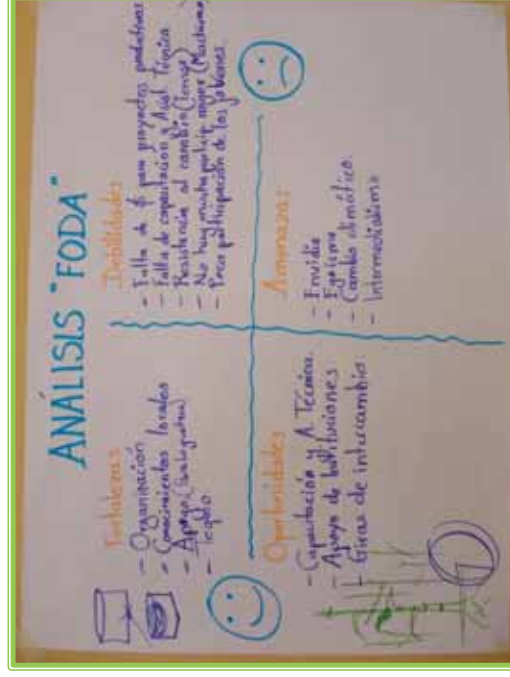 ANÁLISIS "FODA"
Fortalezas
- Organización
- Conocimientos locales
- Apoyo
Debilidades
- Falta de $ para proyectos productivos
- Falta de capacitación y Asist Técnica
- Resistencia al cambio (Tiempo)
- No hay mucha particip mujer (Machismo)
- Poca participación de los jóvenes
Oportunidades
- Capacitación y A. Técnica.
- Apoyo de Instituciones
- Giras de intercambio
Amenazas
- Envidia
- Egoísmo
- Cambio climático.
- Intermediarismo